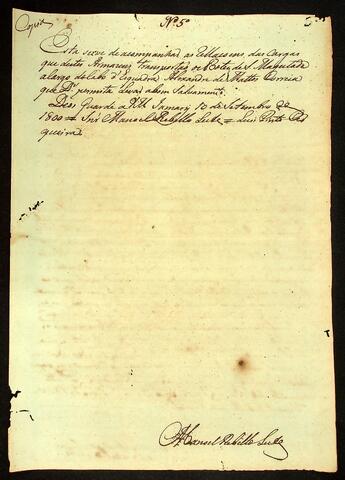 Copia
Nº 5º
Esta serve de acompanhar as Relaçoens das Cargas
que destes Armazens transportão os Botes de S. Magestade
a cargo do Cabo d'Esquadra Alexandre de Mattos Correia
que Ds. permita levar a bem Salvamento.
Deos Guarde a Vm Jamarý 13 de Setembro de
1800 = Snr. Manoel Rebello Leite = Luis Pinto
Manoel Rebello Leite